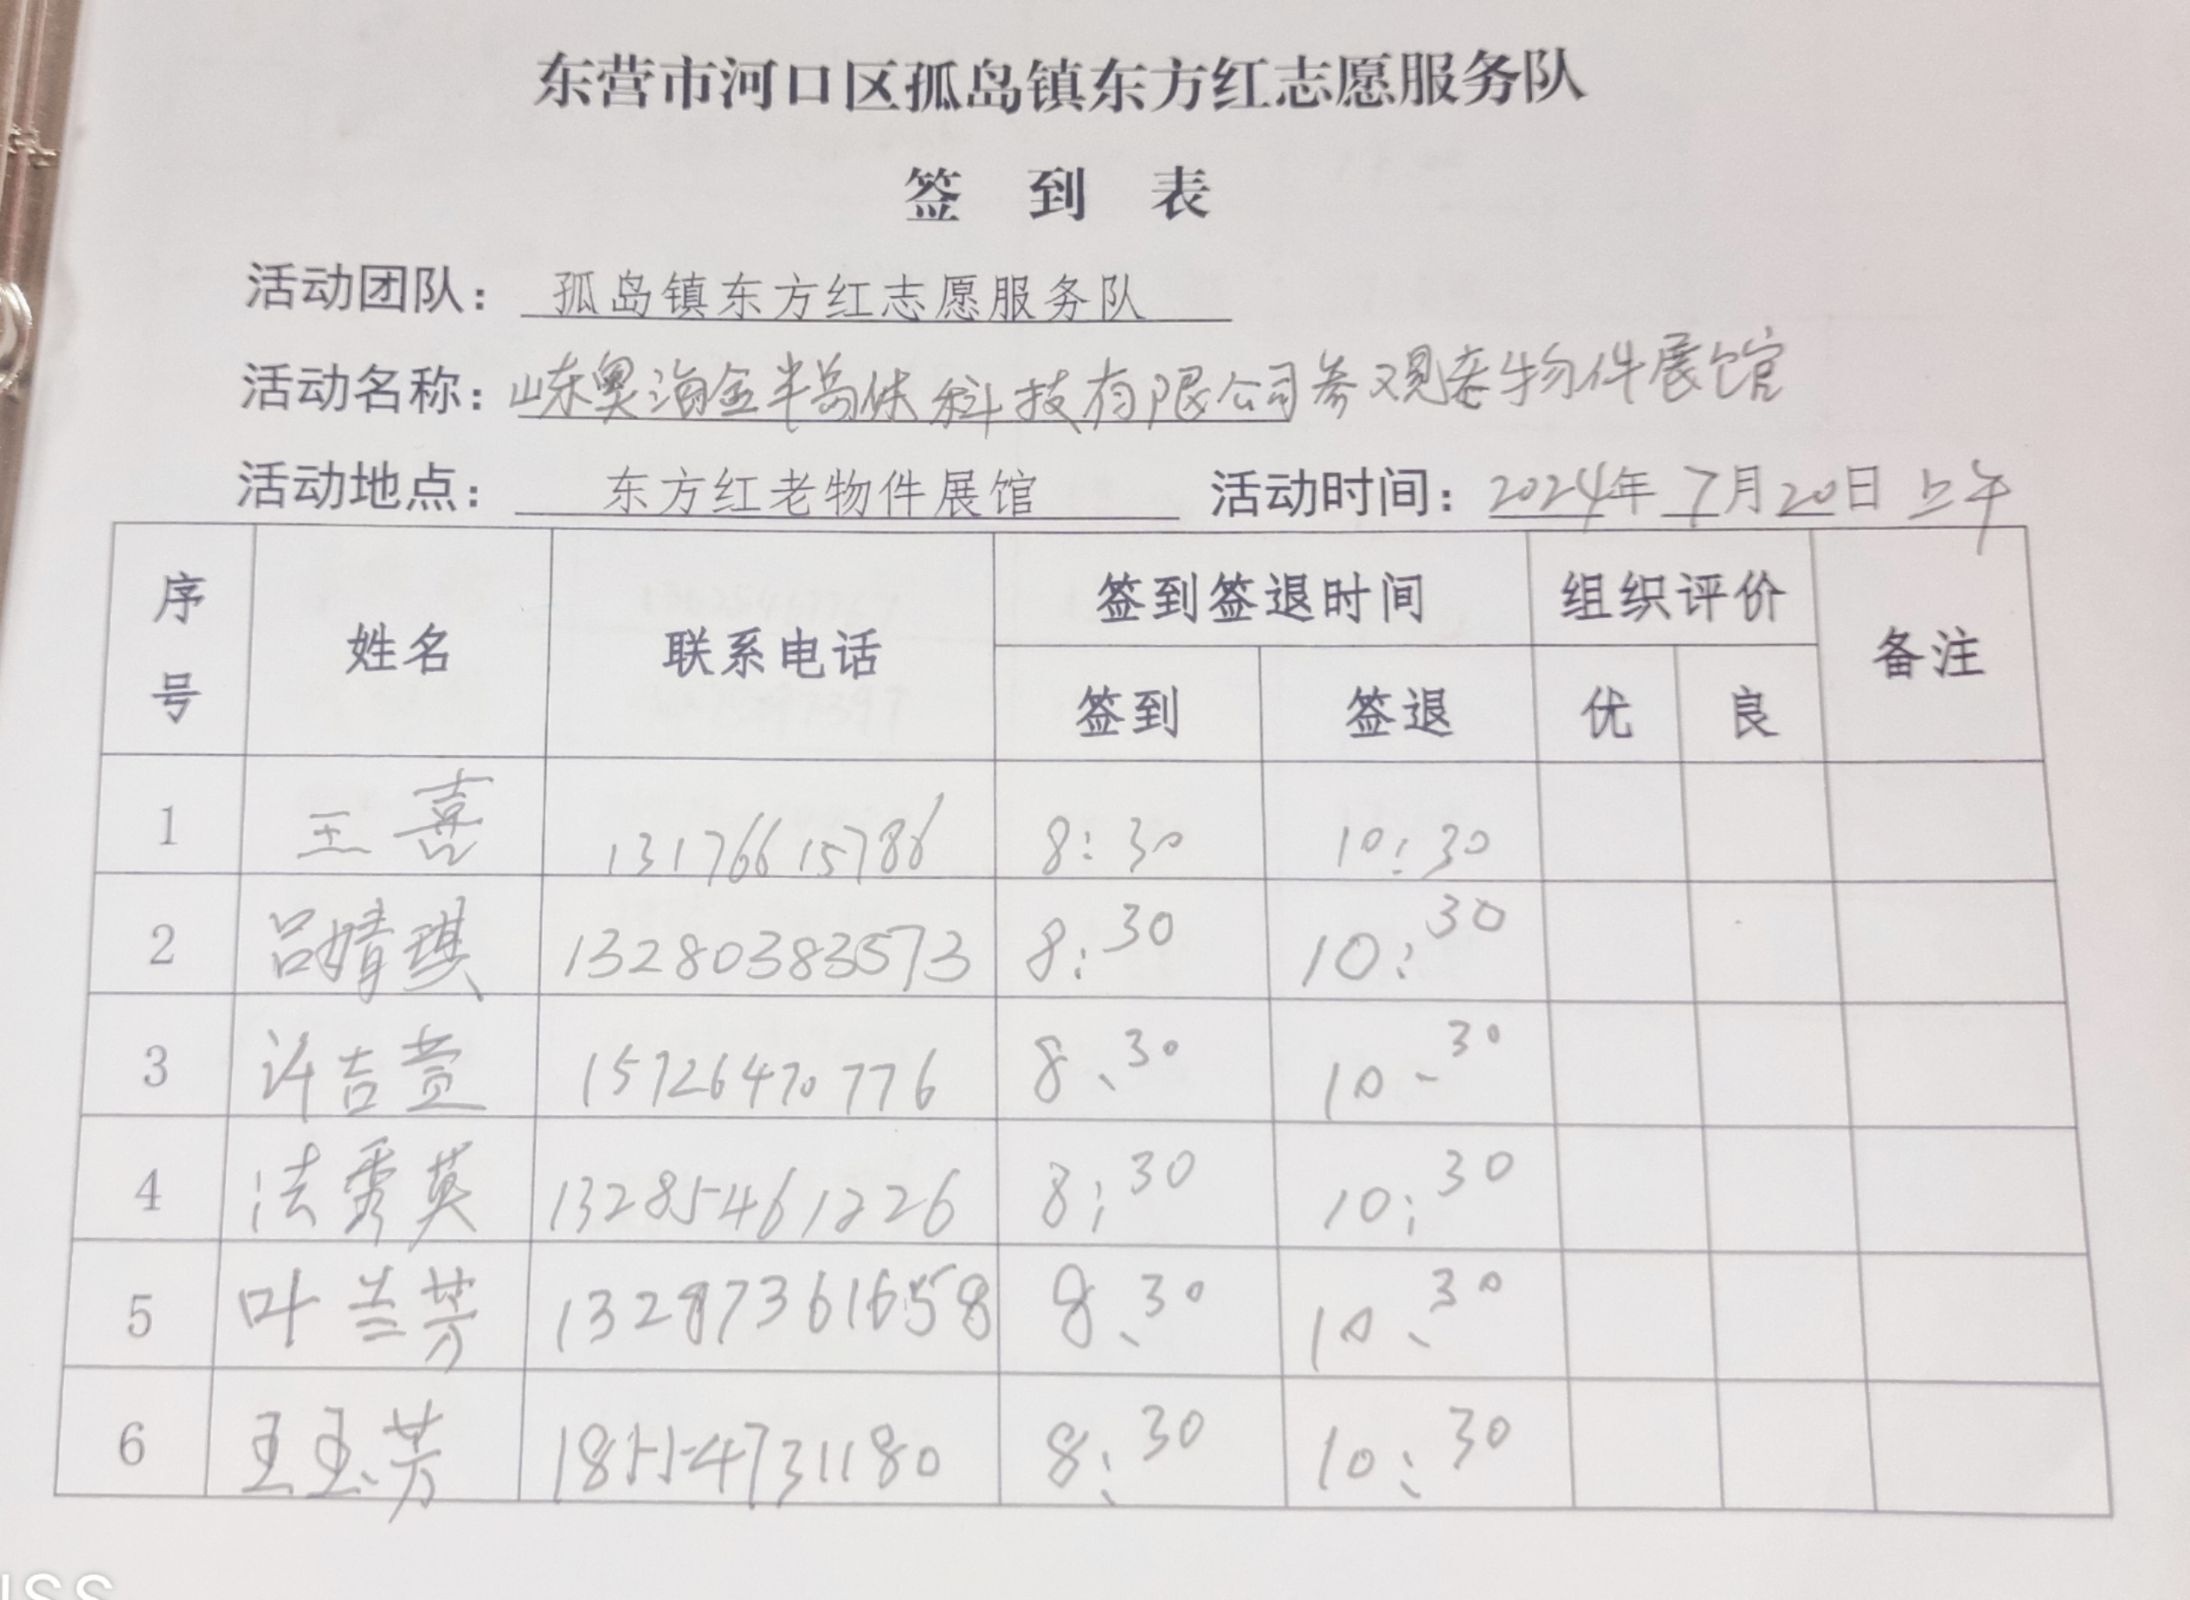 东营市河口区孤岛镇东方红志愿服务队
签 到 表
活动团队： 孤岛镇东方红志愿服务队
活动名称：山东奥海金半岛体科技有限公司参观老物件展馆
活动地点： 东方红老物件展馆 活动时间：2024年 7月20日 上午
序号 姓名 联系电话 签到签退时间 组织评价 备注
签到 签退 优 良
1 王喜 13176615786 8:30 10:30
2 吕婧琪 13280383573 8:30 10:30
3 许吉萱 15726470776 8、30 10、30
4 法秀英 13285461226 8:30 10:30
5 叶兰芳 13287361658 8、30 10、30
6 王玉芳 18554731180 8:30 10:30